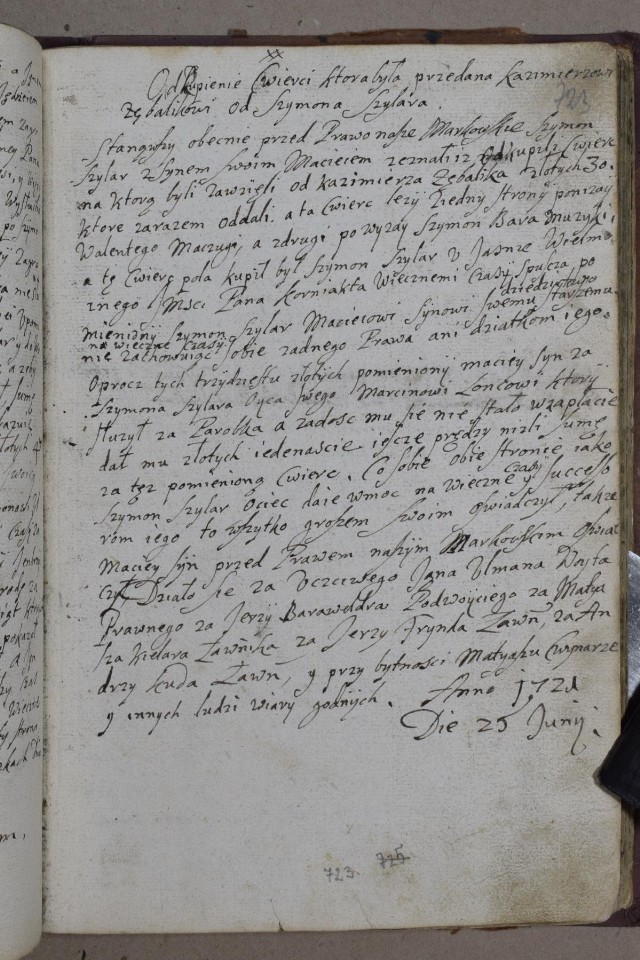 Odkupienie Cwierci ktora była przedana Kazimierzowi
723
Zębalikowi od Szymona Szylara.
Stanąwszy obecnie przed Prawo nasze Markowskie Szymon
Szylar z Synem swoim Macieiem zeznali iz odkupili Cwierc
na ktorą byli zawzięli od Kazimierza Zębalika złotych 30.
ktore zarazem oddali. a ta Cwierc lezy ziedny strony ponizay
Walentego Maczugi, a zdrugi powyzay Szymon Bara muzyk,
a tę Cwierc pola kupił był Szymon Szylar u Jasnie Wielmo
znego Msci Pana Korniakta Wiecznemi Czasy spuscza po
dziedziczną
mieniony Szymon Szylar Macieiowi Synowi swemu starszemu
na wieczne czasy
nie zachowuiąc sobie zadnego Prawa ani dziatkom iego.
Oprocz tych trzydziestu złotych pomieniony maciey syn za
Szymona Szylara Oyca swego Marcinowi Loncowi ktory
służył za Parobka a zadosc mu sie nie stało w zapłacie
dał mu złotych iedenascie iescze prędzy nizli sumę
za tęz pomienioną Cwierc. Co sobie obie stronie iako
Szymon Szylar Ociec daie w moc na wieczne czasy y Successo
rom iego to wszytko groszem swoim oswiadczył, takze
Maciey syn przed Prawem naszym Markowskim oswiad
czył Działo sie za Uczciwego Jana Ulmana Woyta
Prawnego za Jerzy Baraweldra Podwoyciego za Matya
sza Kielara Ławnika za Jerzy Frynda Ławn, za An
drzy Kuda Ławn, y przy bytnosci Matyaszu Cwynarze
y innych ludzi wiary godnych. Anno 1721
Die 25 Junij.
723. 725